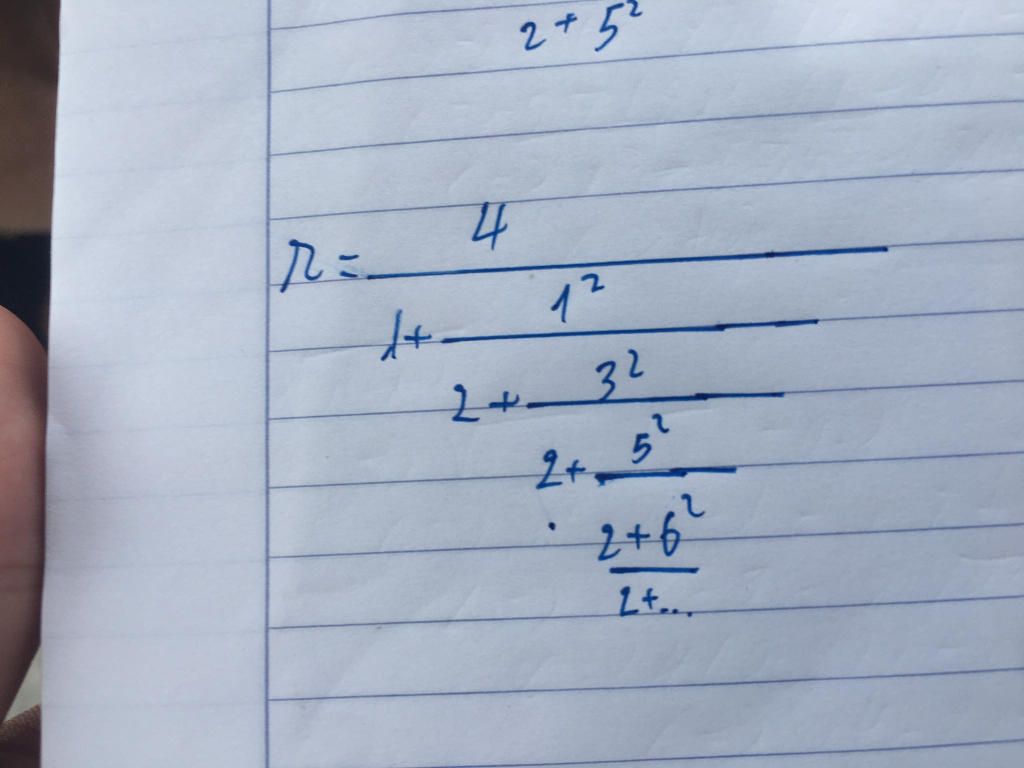 2 + 5²
4
π =
1²
1+
3²
2 +
5²
2+
2 + 6²
2+...